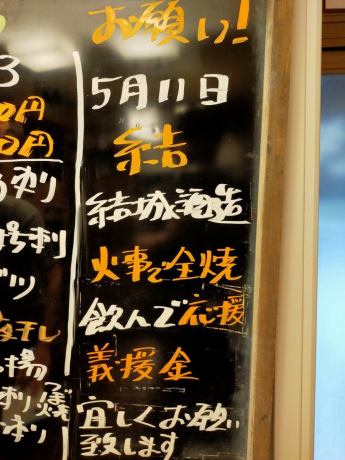 お願い!
5月11日
結
結城酒造
火事で全焼
飲んで応援
義援金
宜しくお願い
致します
3
0円
0円
刺
刺
ツ
干し
揚
刺
つぼ焼
刺